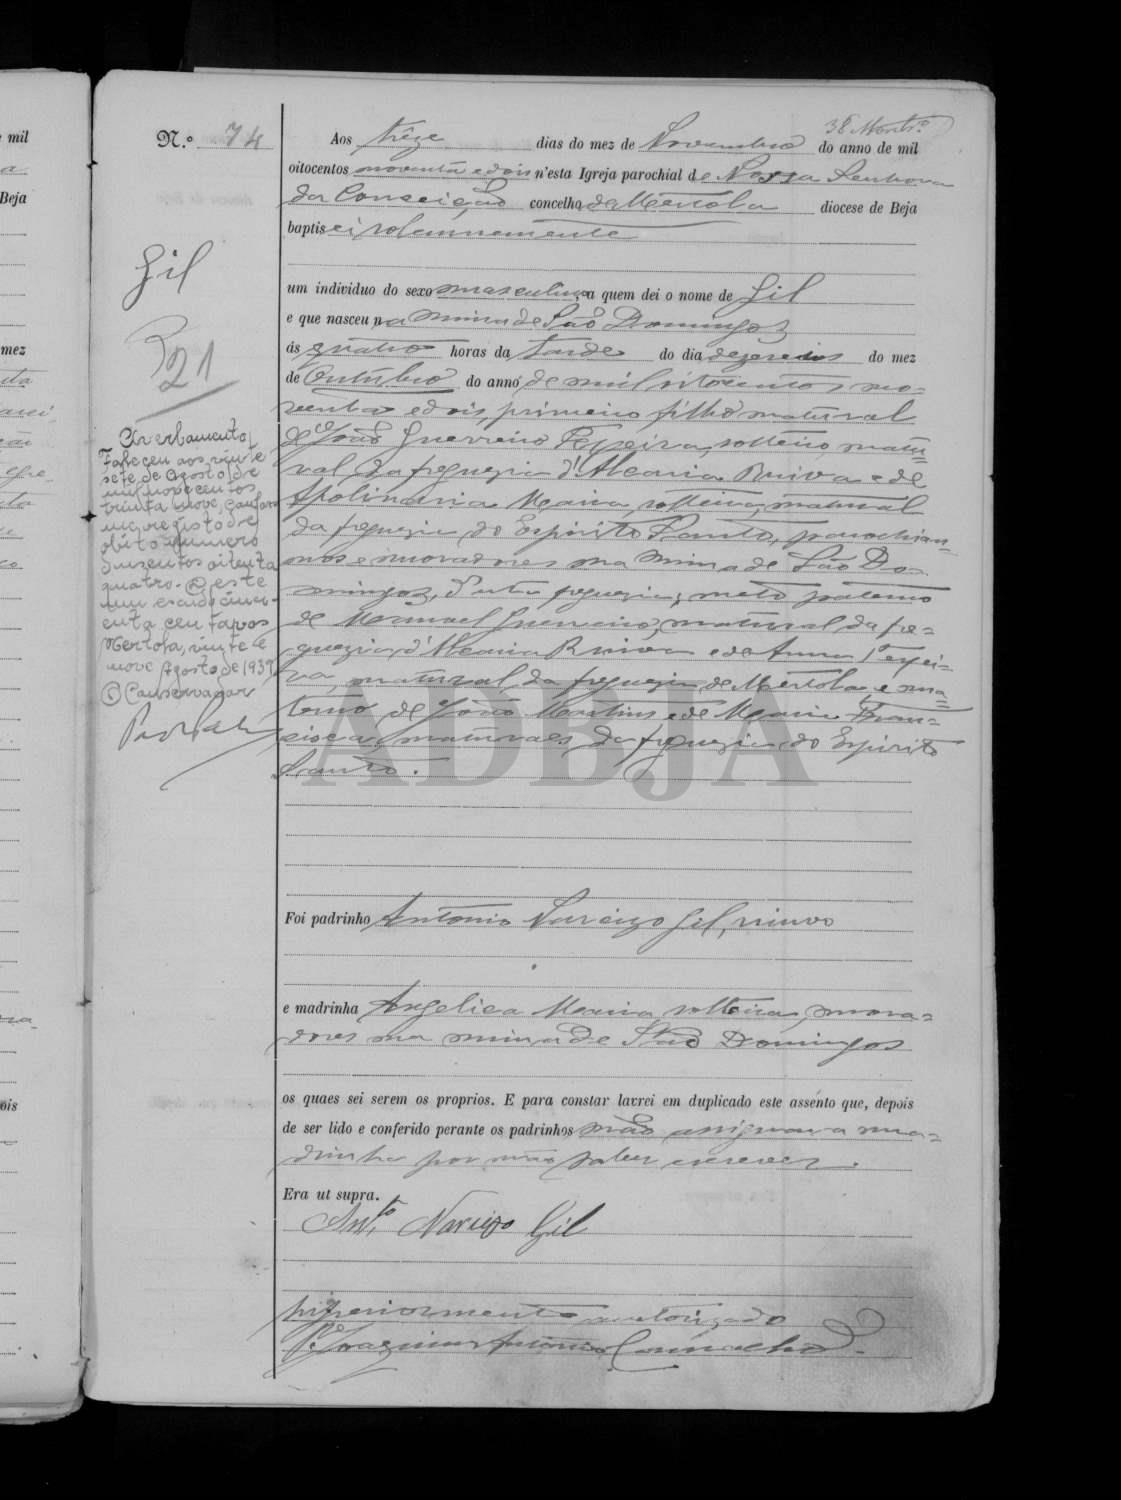 mil
Beja
mez
ois
38 Monts.º
N.º 74
Aos trêze dias do mez de Novembro do anno de mil
oitocentos noventa e dois n'esta Igreja parochial de Nossa Senhora
da Conceição concelho de Mertola diocese de Beja
baptisei solemnemente
um individuo do sexo masculino, a quem dei o nome de Gil
e que nasceu na mina de São Domingos
ás quatro horas da tarde do dia dezeseis do mez
de Outubro do anno de mil oitocentos no=
venta e dois, primeiro filho natural
de João Guerreiro Teixeira, solteiro natu=
ral da freguezia d'Alcaria Ruiva e de
Apolinaria Maria, solteira, natural
da freguezia do Espirito Santo, parochian=
nos e moradores na mina de São Do=
mingos, d'esta freguezia; neto paterno
de Manuel Guerreiro, natural da fre=
guezia d'Alcaria Ruiva e de Anna Teixei=
ra, natural da freguezia de Mertola, e ma=
terno de João Martins e de Maria Fran=
cisca, naturaes da freguezia do Espirito
Santo.
Foi padrinho Antonio Narcizo Gil, viuvo
e madrinha Angelica Maria, solteira, mora=
dores na mina de São Domingos
os quaes sei serem os proprios. E para constar lavrei em duplicado este assento que, depois
de ser lido e conferido perante os padrinhos não assignou a ma=
drinha por não saber escrever.
Era ut supra.
Ant.º Narcizo Gil
superiormente autorizado
P.e Joaquim Antonio Carvalho
Gil
321
Averbamento
Faleceu aos vinte e
sete de Agosto de
mil novecentos
trinta e nove, conforme
registo de
obito numero
duzentos oitenta
quatro. @ este
um escudo cinco-
enta centavos
Mertola, vinte e
nove Agosto de 1939
O Conservador
ADBJA